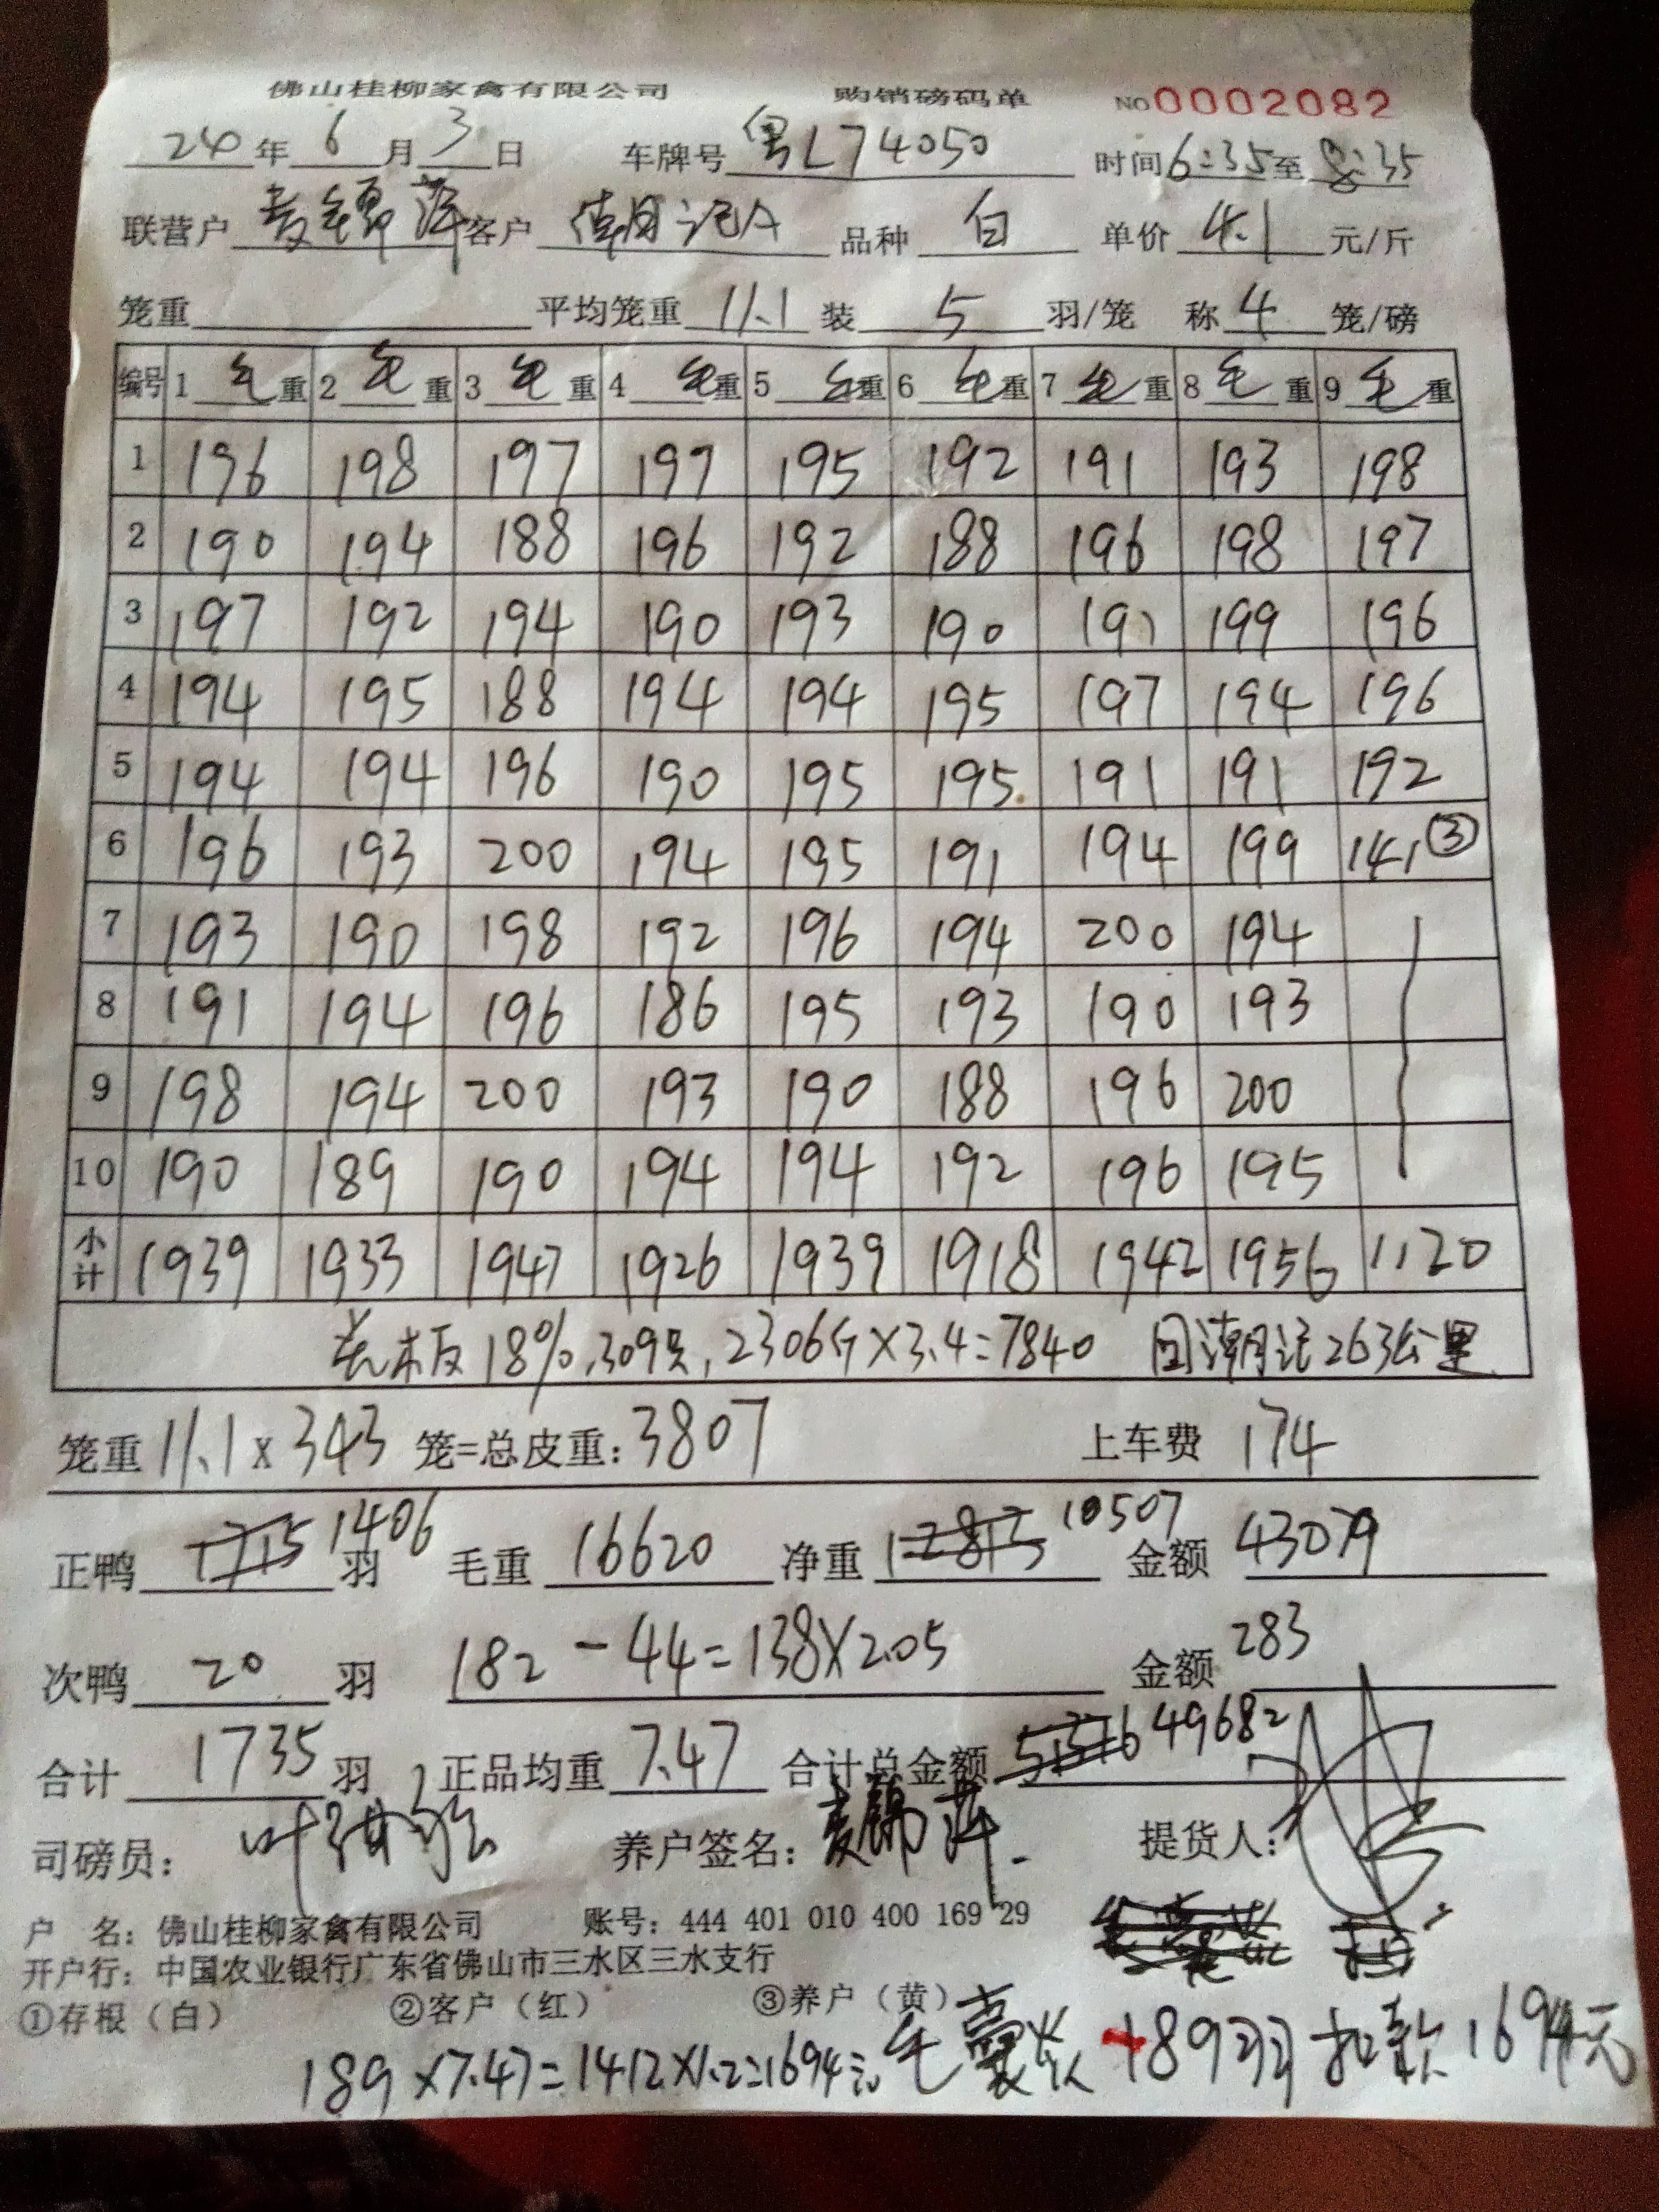 佛山桂柳家禽有限公司 购销磅码单 NO 0002082
24年6月3日 车牌号 粤L74050 时间6:35至8:35
联营户 麦锦萍 客户 潮记A 品种 白 单价 4.1 元/斤
笼重 平均笼重 11.1 装 5 羽/笼 称 4 笼/磅
编号 1 毛重 2 毛重 3 毛重 4 毛重 5 毛重 6 毛重 7 毛重 8 毛重 9 毛重
1 196 198 197 197 195 192 191 193 198
2 190 194 188 196 192 188 196 198 197
3 197 192 194 190 193 190 191 199 196
4 194 195 188 194 194 195 197 194 196
5 194 194 196 190 195 195 191 191 192
6 196 193 200 194 195 191 194 199 141 ③
7 193 190 198 192 196 194 200 194
8 191 194 196 186 195 193 190 193
9 198 194 200 193 190 188 196 200
10 190 189 190 194 194 192 196 195
小计 1939 1933 1947 1926 1939 1918 1942 1956 1120
毛板18%,309只,2306斤×3.4=7840 回潮记263公里
笼重 11.1×343 笼=总皮重:3807 上车费 174
正鸭 1406 羽 毛重 16620 净重 10507 金额 43079
次鸭 20 羽 182-44=138×2.05 金额 283
合计 1735 羽 正品均重 7.47 合计总金额 49682
司磅员: 养户签名:麦锦萍 提货人:
户 名:佛山桂柳家禽有限公司 账号:444 401 010 400 169 29
开户行:中国农业银行广东省佛山市三水区三水支行
①存根(白) ②客户(红) ③养户(黄)
189×7.47=1412×1.2=1694元 毛 189羽 扣款1694元